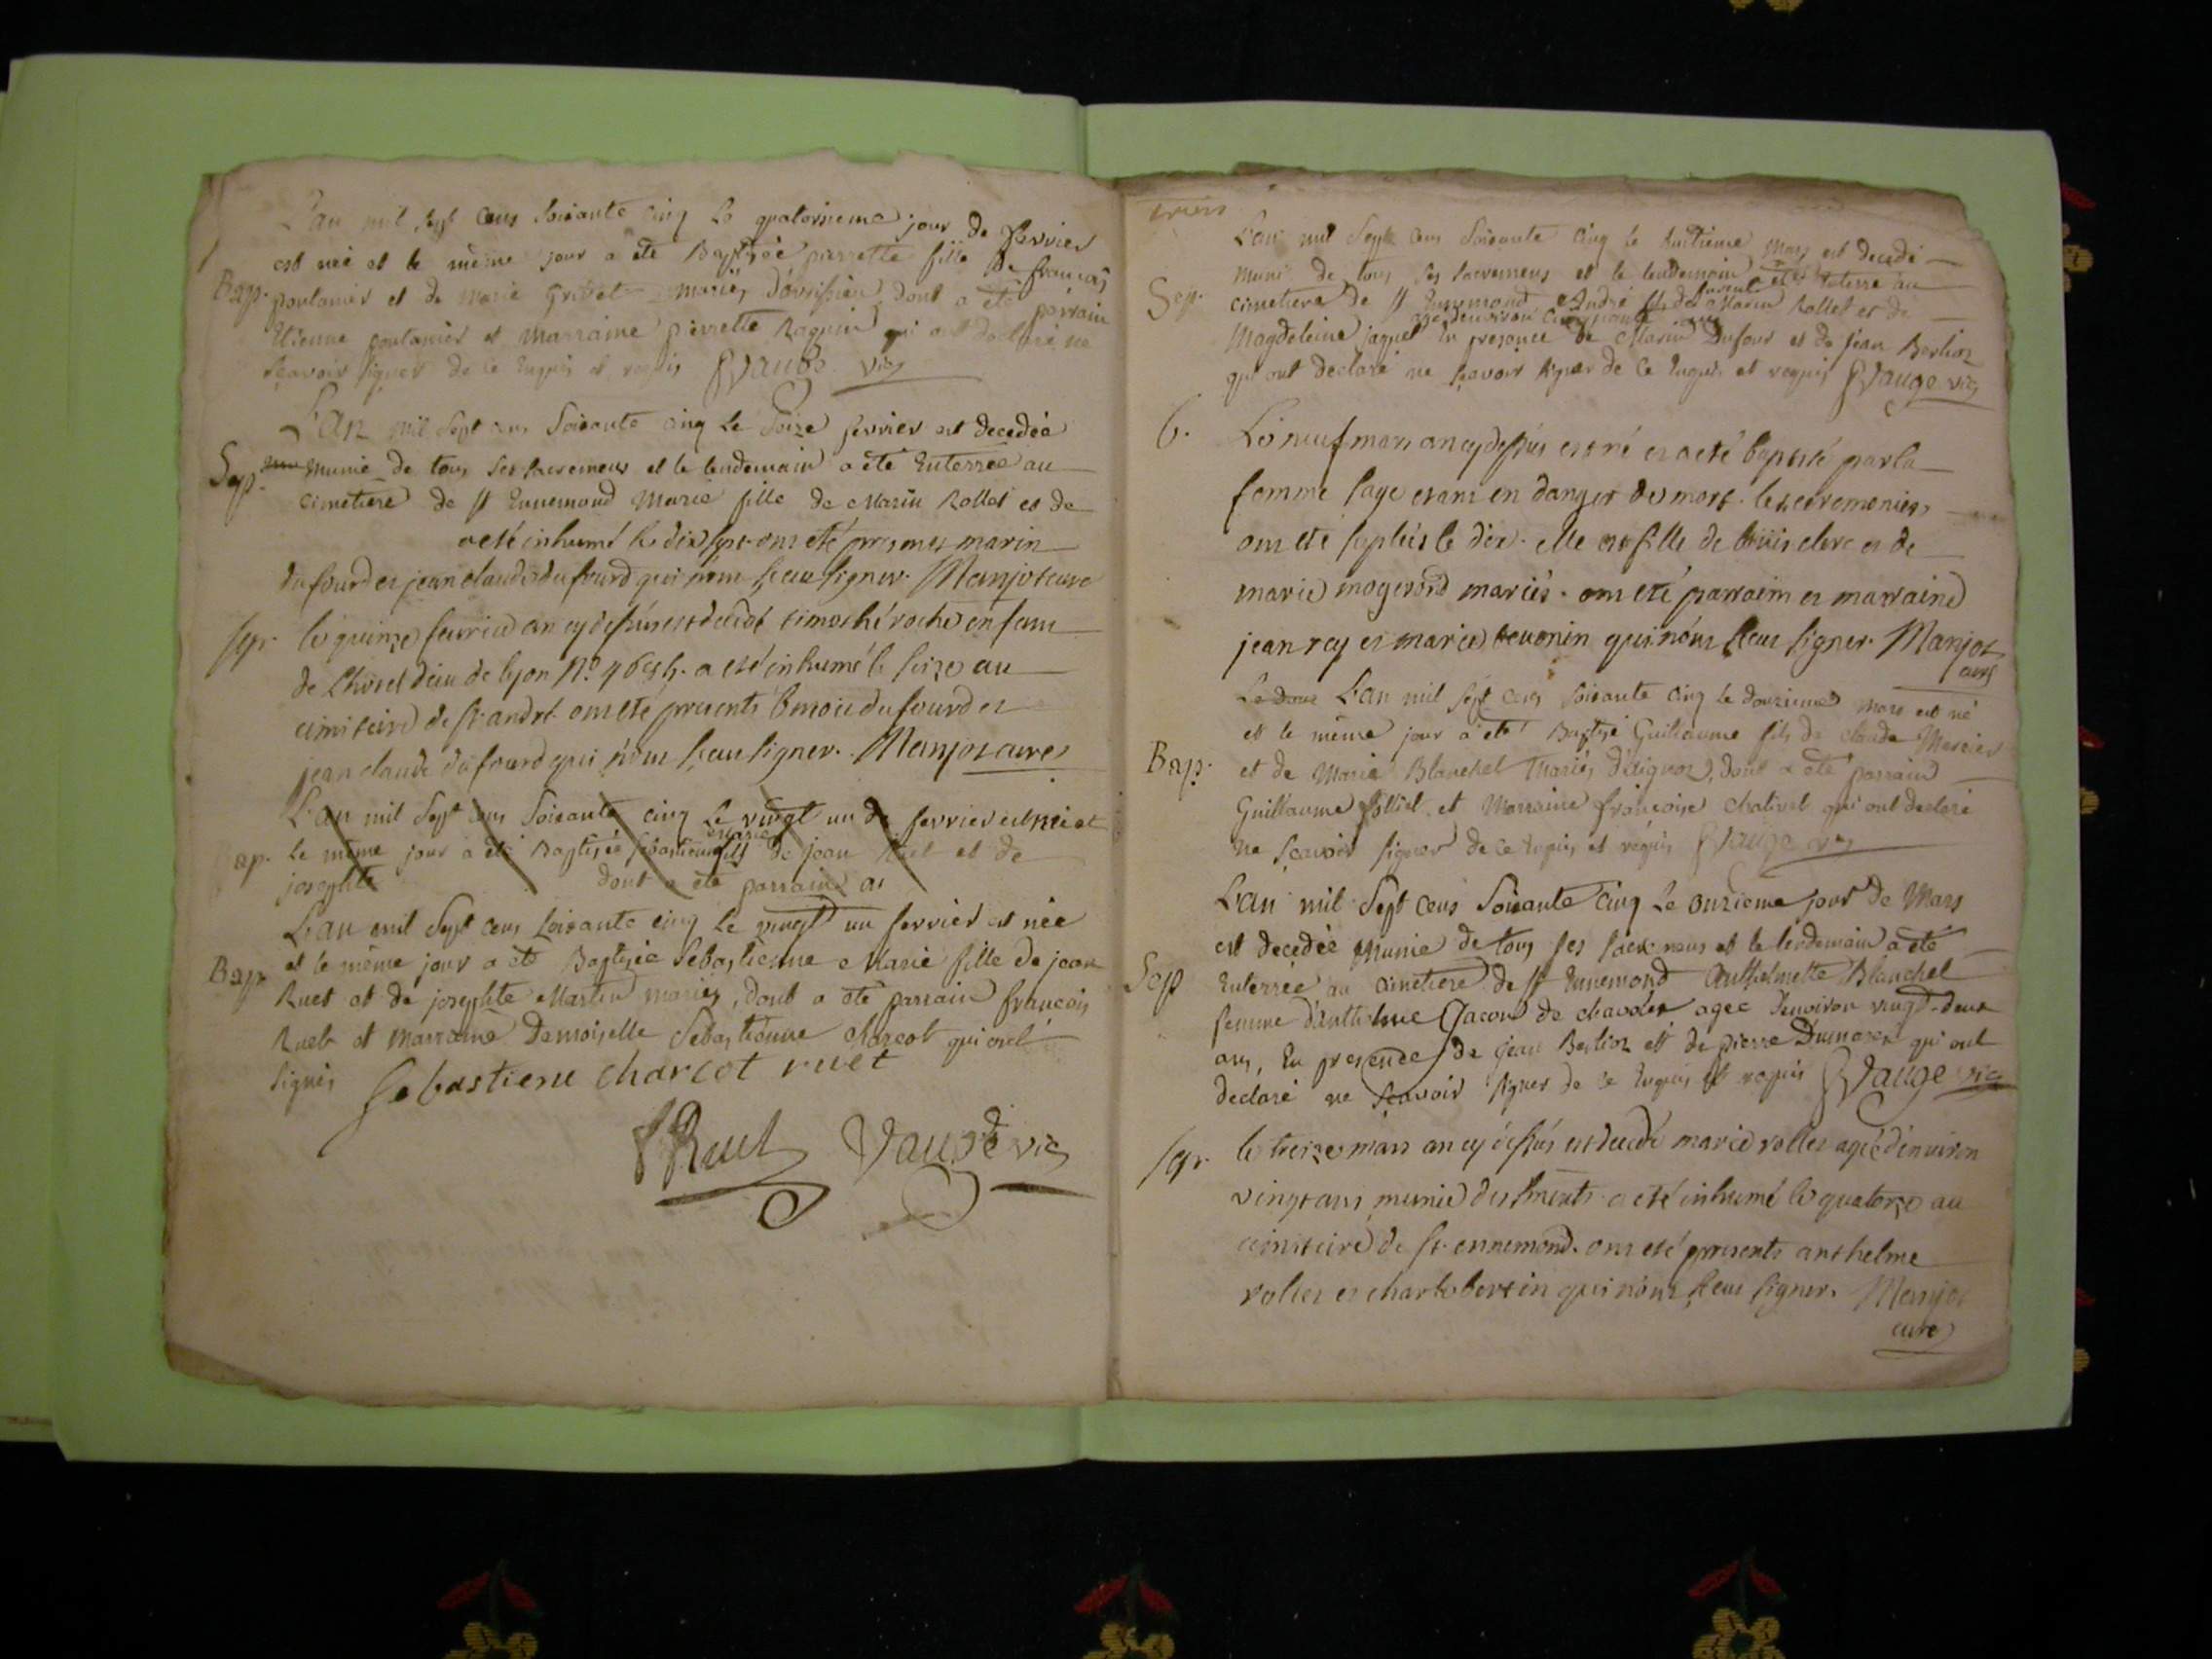 L'an mil sept cens soixante cinq le quatorsieme jour de fevrier
est née et le même jour a été Baptisée pierrette fille de francois
Bap. poulanier et de Marie Grivet mariés dont a été parrain
Etienne poulanier et Marraine pierrette Raquin qui ont declaré ne
sçavoir signer de ce enquis et requis Vaugé vic
L'an mil sept cens soixante cinq le seize fevrier est decedée
Sep. munie de tous ses sacremens et le lendemain a été Enterrée au
cimetiere de st Ennemond Marie fille de Marin Rollet et de
a eté inhumé le dix sept. ont eté presents marin
dufourd et jean claude dufourd qui n'ont sceu signer. Manjot curé
Sep. le quinze fevrier an cy dessus est decedé timothé roche enfant
de l'hotel dieu de lyon No a eté inhumé le seize au
cimitiere de st. andré. ont eté presents benoit dufourd et
jean claude dufourd qui n'ont sceu signer. Manjot curé
L'an mil sept cens soixante cinq le vingt un de fevrier est née et
ap. le même jour a été Baptisée sebastienne marie de jean Ruet et de
josephte dont a été parrain
L'an mil sept cens soixante cinq le vingt un fevrier est née
et le même jour a été Baptisée Sebastienne Marie fille de jean
Bap. Ruet et de josephte Martin mariés, dont a été parrain francois
Ruet et Marraine Demoiselle Sebastienne charcot qui ont
signés Sebastiene charcot ruet
Ruet Vaugé vic
L'an mil sept cens soixante cinq le huitieme Mars est decedé
muni de tous ses sacremens et le lendemain a été Enterré au
Sep. cimetiere de st Ennemond André fils de Marin Rollet et de
agé d'environ cinquante ans
Magdeleine jaquet En presence de Marin Dufour et de jean Berlioz
qui ont declaré ne sçavoir signer de ce enquis et requis Vaugé vic
b. Le neuf mars an cy dessus est né et a eté baptisé par la
femme sage etant en danger de mort. les ceremonies
ont eté suplées le dix. elle est fille de louis clerc et de
marie mogerord mariés. ont eté parrain et marraine
jean rey et marie tevenin qui n'ont sceu signer. Manjot
curé
Le douz L'an mil sept cens soixante cinq le douzieme mars est né
et le même jour a été Baptisé Guillaume fils de claude Mercier
Bap. et de Marie Blanchet Mariés dont a été parrain
Guillaume et Marraine françoise chativet qui ont declaré
ne sçavoir signer de ce enquis et requis Vaugé vic
L'an mil sept cens soixante cinq le onzieme jour de Mars
est decedée Munie de tous ses sacremens et le lendemain a été
Sep Enterrée au cimetiere de st Ennemond Anthelmette Blanchet
femme d'anthelme Jacon de chavolet agee d'environ vingt-deux
ans, En presence de jean Berlioz et de pierre Dumaret qui ont
declaré ne sçavoir signer de ce enquis et requis Vaugé vic
Sep. le treize mars an cy dessus est decedé marie rollet agée d'environ
vingt ans munie des sments a eté inhumé le quatorze au
cimitiere de st. ennemond. ont eté presents anthelme
rollet et charle bertin qui n'ont sceu signer. Manjot
curé